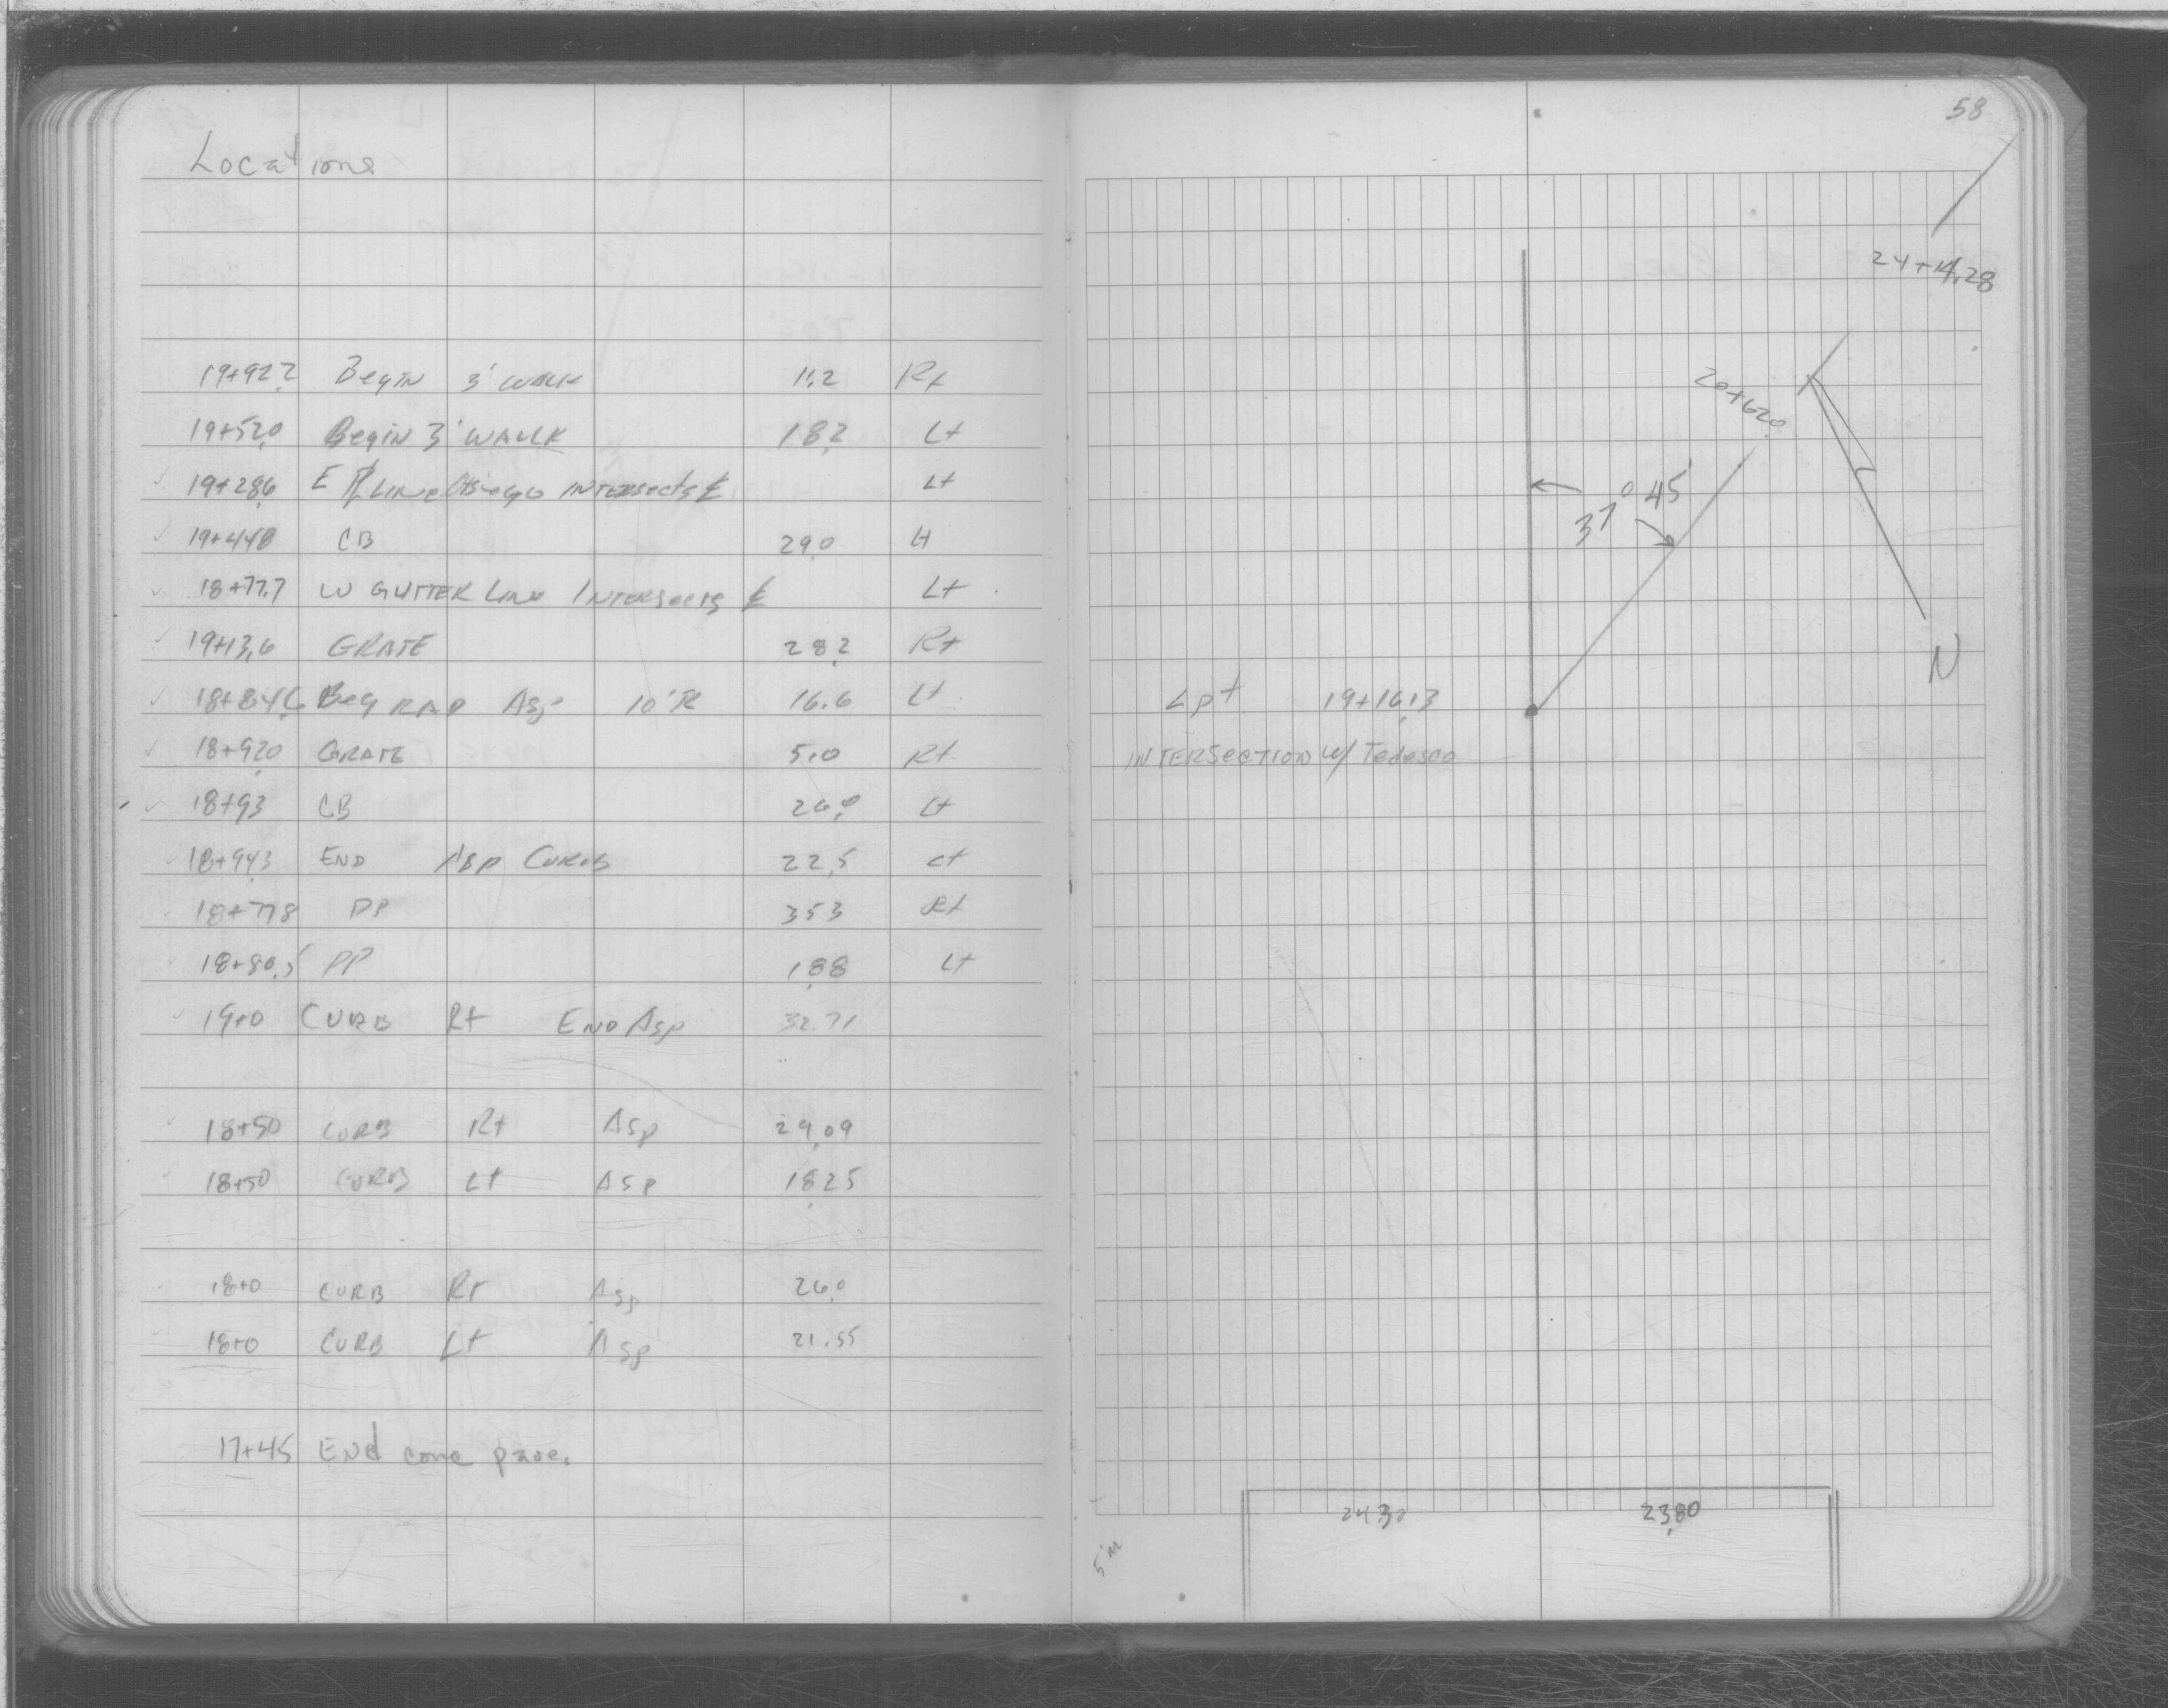 Locations
19+92.2 Begin 3' WALK 11.2 Rt
19+52.0 Begin 3' WALK 18.2 Lt
19+28.6 E ℙ LINE INTERSECTS ℄ Lt
19+44.8 CB 29.0 Lt
18+77.7 W GUTTER LINE INTERSECTS ℄ Lt
19+13.6 GRATE 28.2 Rt
18+84.6 Beg RAD Asp 10'R 16.6 Lt
18+92.0 GRATE 5.0 Rt
18+93 CB 26.0 Lt
18+94.3 END Asp CURB 22.5 Lt
18+77.8 PP 35.3 Rt
18+80.5 PP 18.8 Lt
19+0 CURB Rt END Asp 32.71
18+50 CURB Rt Asp 29.09
18+50 CURB Lt Asp 18.25
18+0 CURB Rt Asp 26.0
18+0 CURB Lt Asp 21.55
17+45 End conc pave.
58
24+14.28
20+62.0
37° 45'
N
Lpt 19+16.13
INTERSECTION w/ Tedesco
24.30 23.80